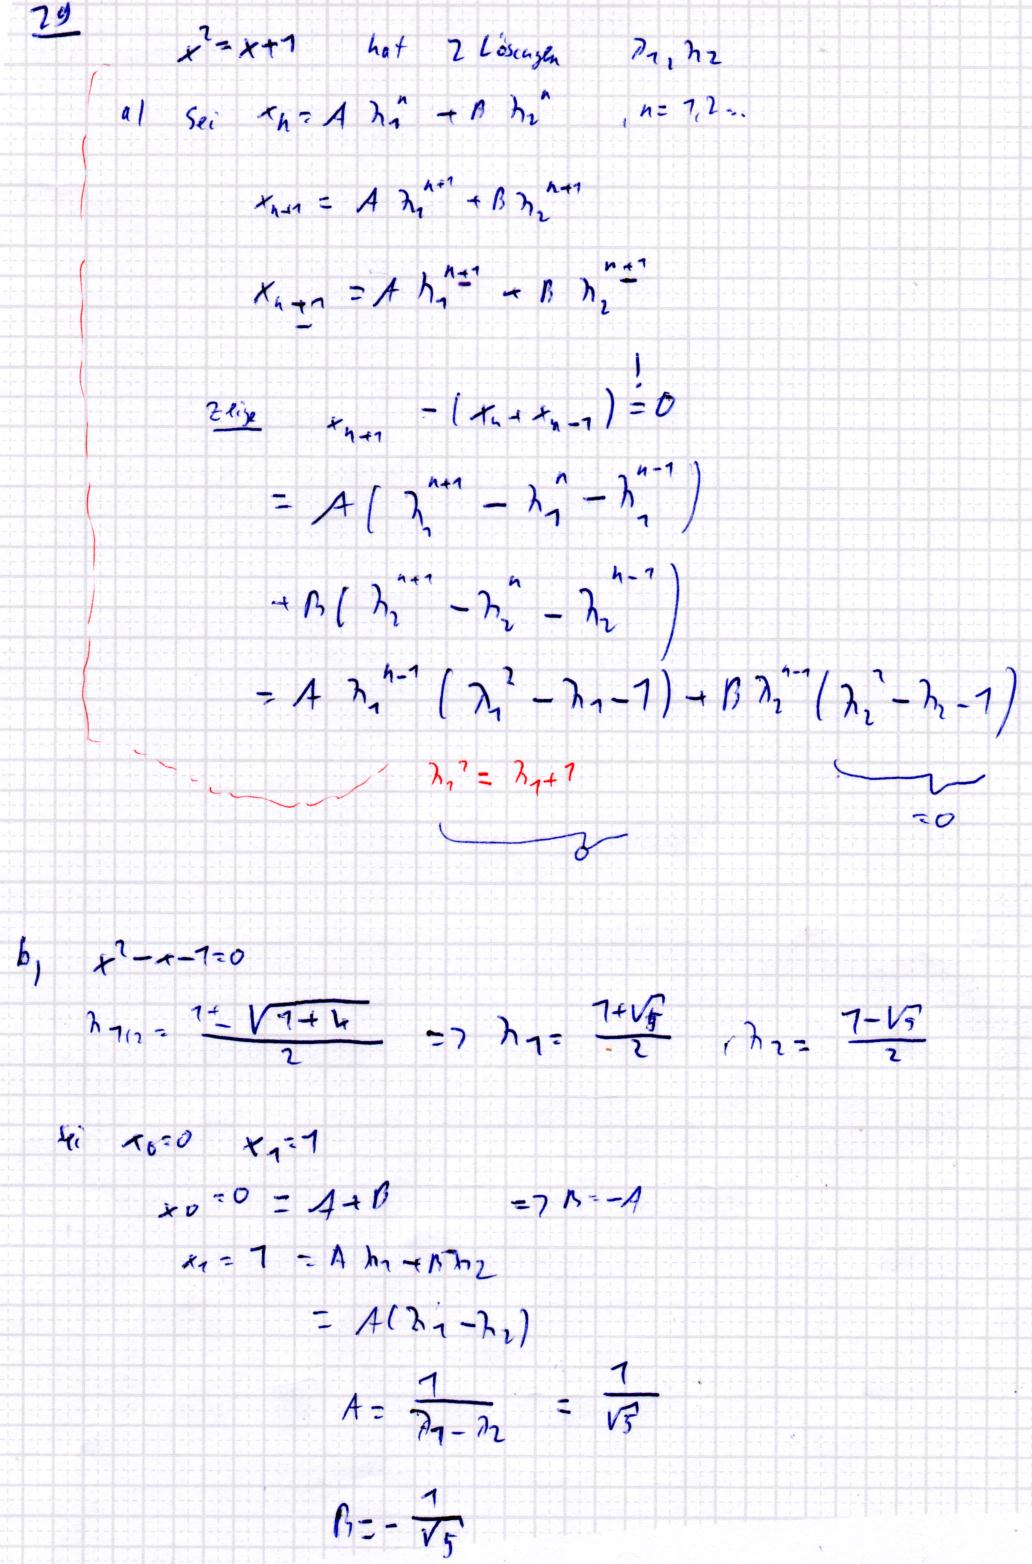 29
x² = x+1 hat 2 Lösungen λ₁, λ₂
a) Sei xₙ = A λ₁ⁿ + B λ₂ⁿ , n = 1,2...
xₙ₊₁ = A λ₁ⁿ⁺¹ + B λ₂ⁿ⁺¹
xₙ₊₁ = A λ₁ⁿ⁺¹ + B λ₂ⁿ⁺¹
!
Zeige xₙ₊₁ - (xₙ + xₙ₋₁) = 0
= A( λ₁ⁿ⁺¹ - λ₁ⁿ - λ₁ⁿ⁻¹ )
+ B( λ₂ⁿ⁺¹ - λ₂ⁿ - λ₂ⁿ⁻¹ )
= A λ₁ⁿ⁻¹ ( λ₁² - λ₁ - 1 ) + B λ₂ⁿ⁻¹ ( λ₂² - λ₂ - 1 )
λ₁² = λ₁ + 1
=0
0
b, x² - x - 1 = 0
λ₁/₂ = (1 ± √(1+4))/2 => λ₁ = (1+√5)/2 , λ₂ = (1-√5)/2
Sei x₀=0 x₁=1
x₀ = 0 = A + B => B = -A
x₁ = 1 = A λ₁ + B λ₂
= A(λ₁ - λ₂)
A = 1/(λ₁ - λ₂) = 1/√5
B = - 1/√5